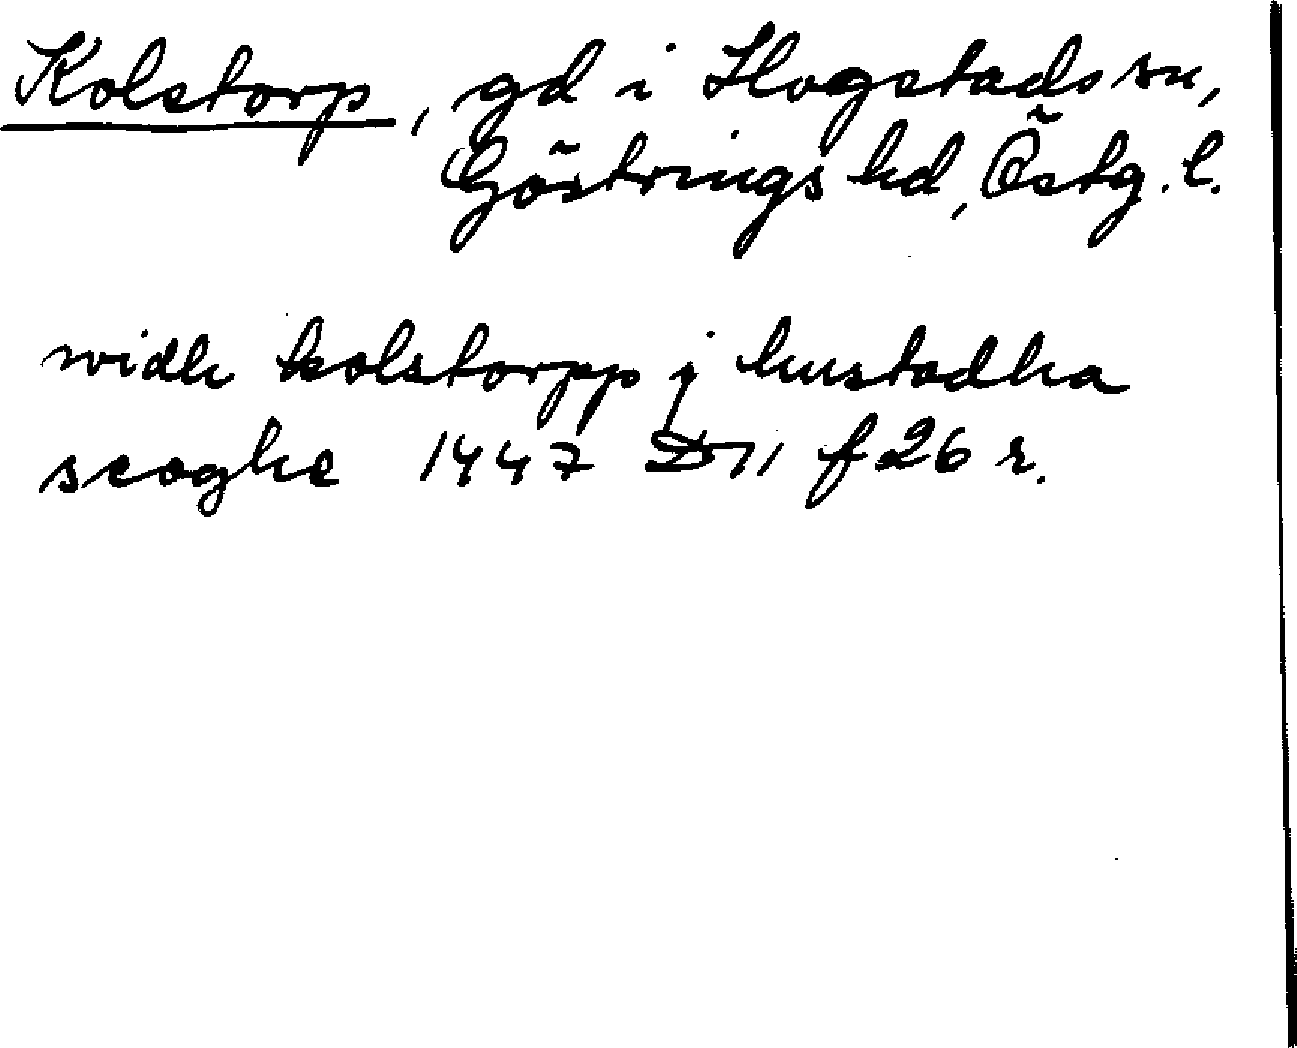 Kolstorp, gd i Hogstads sn,
Göstrings hd, Östg. l.
widh kolstorpp j hustadha
scoghe 1447 D 11 f 26 r.